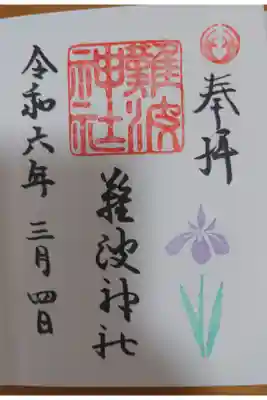 奉拝
難波
神社
難波神社
令和六年 三月四日